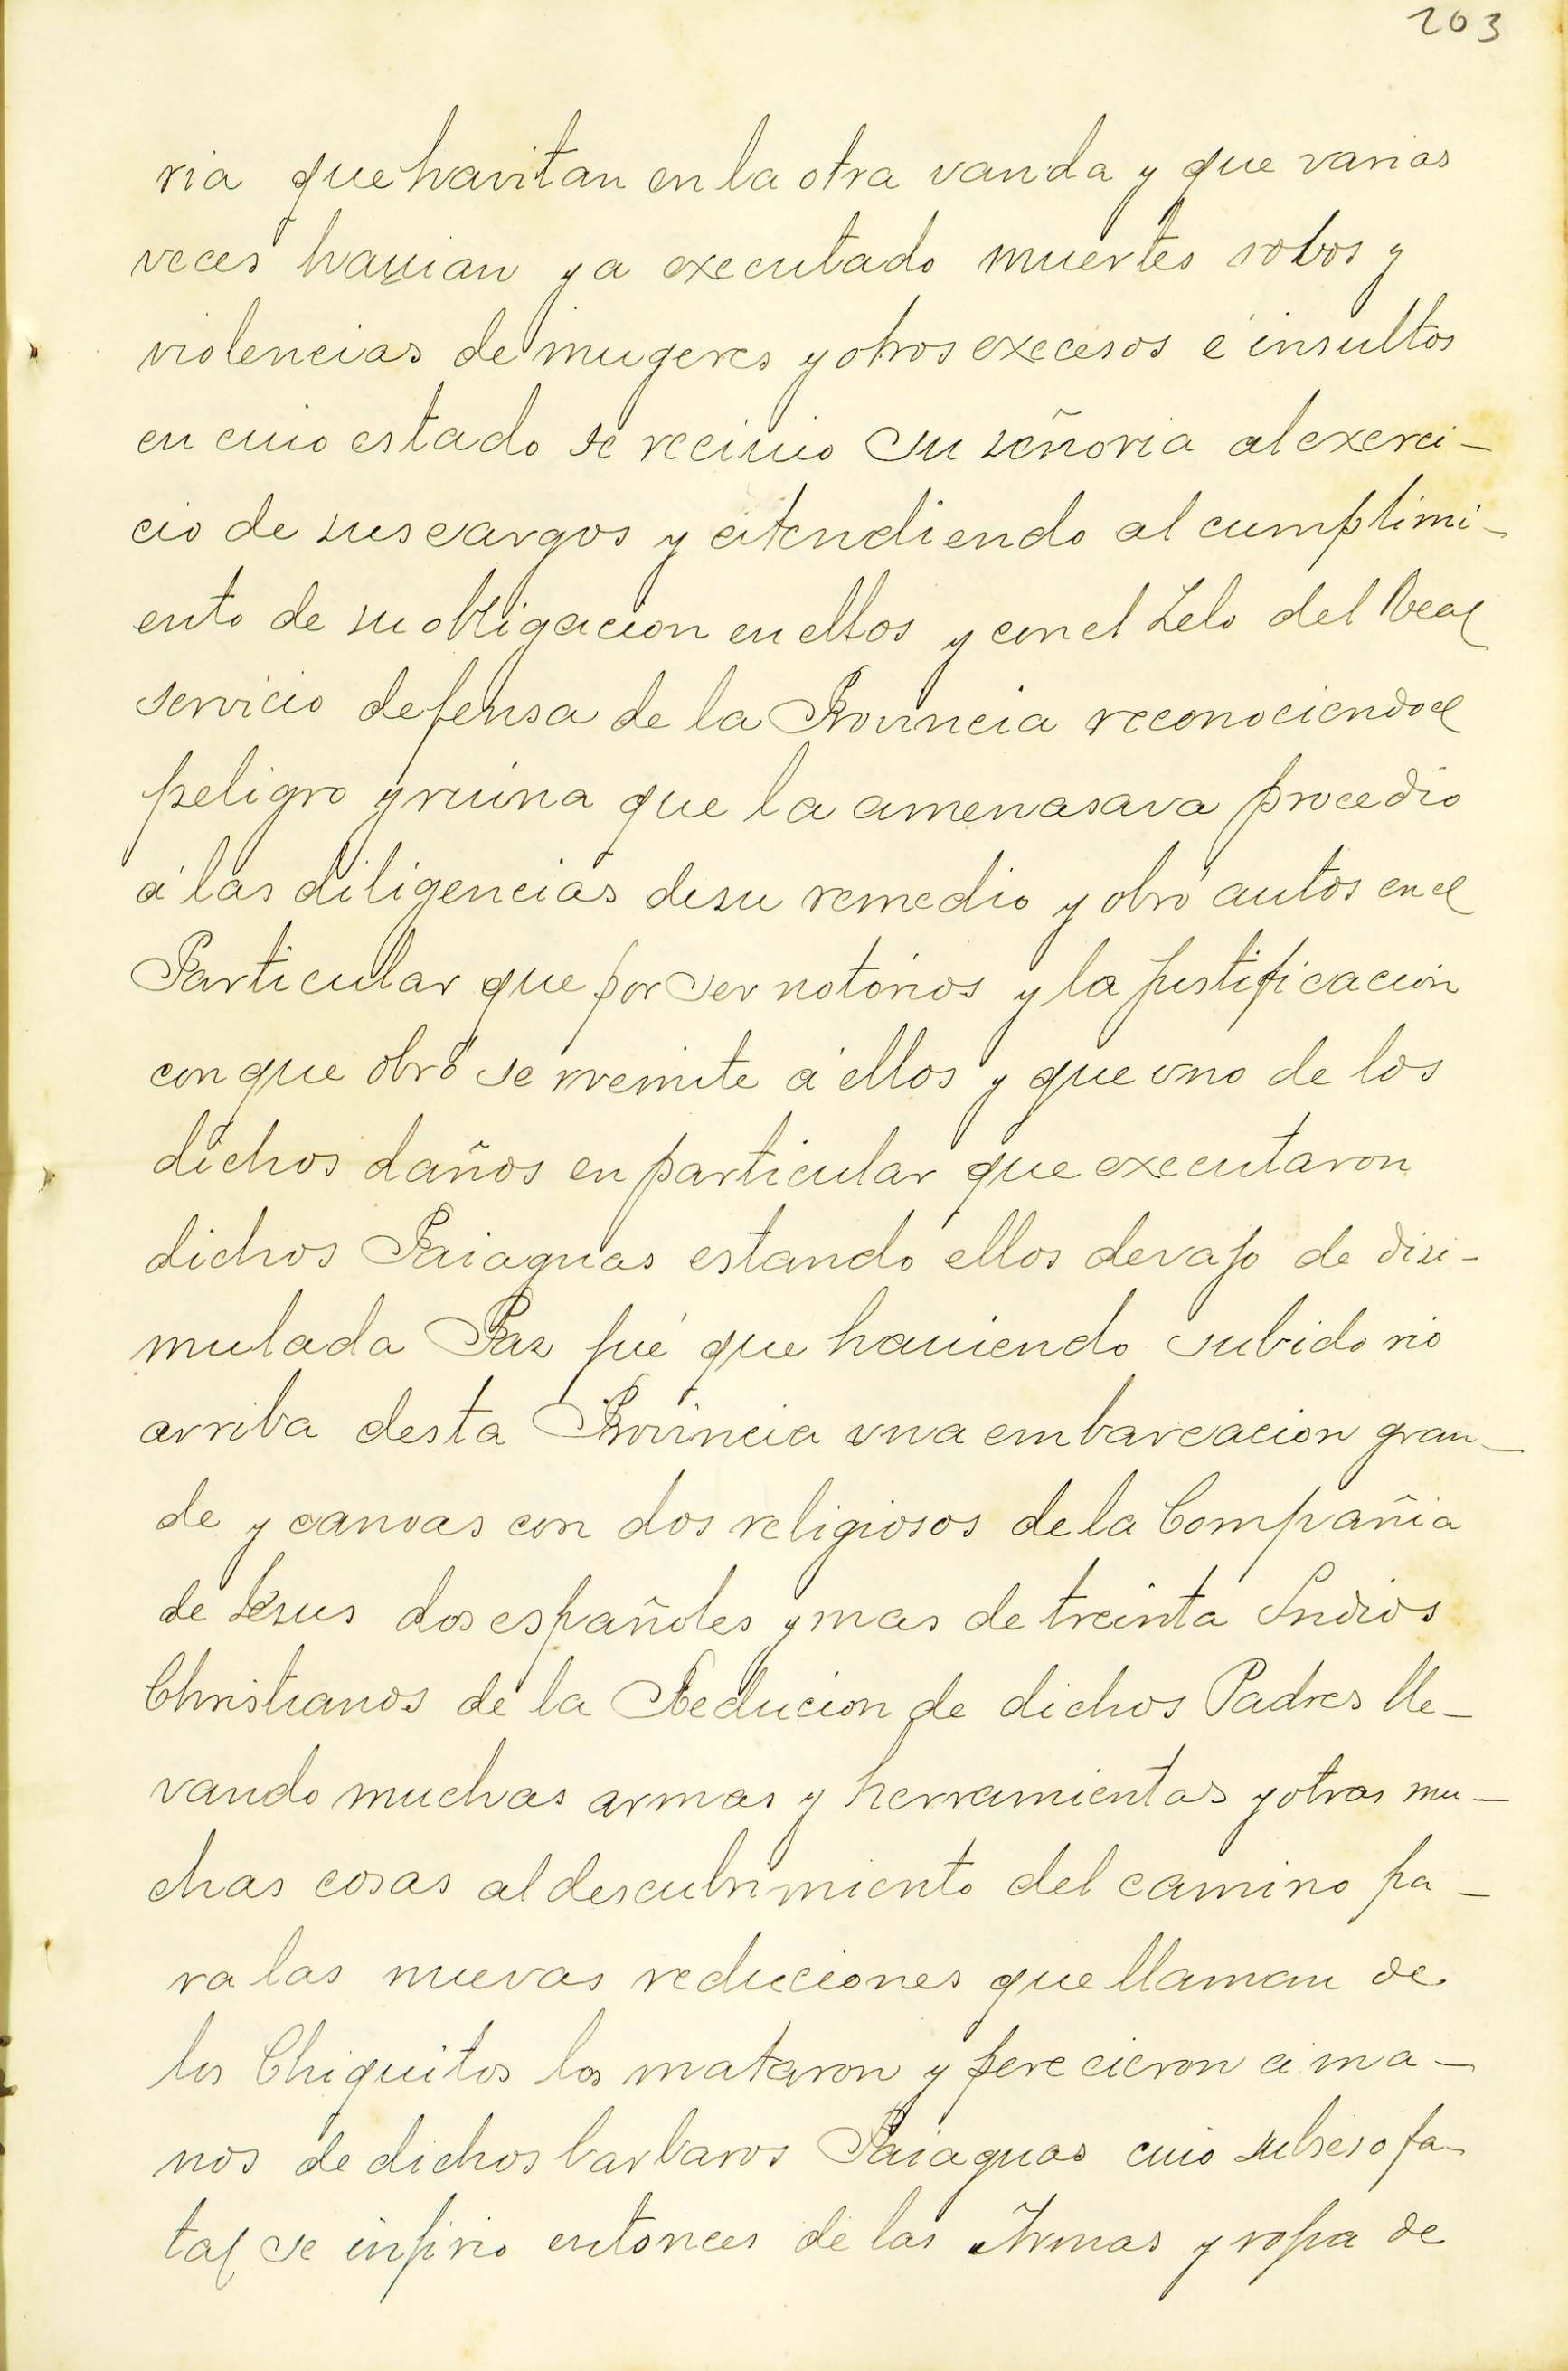 203
ria que havitan en la otra vanda y que varias
veces hauian ya executado muertes robos y
violencias de mugeres y otros execesos é insultos
en cuio estado se reciuio su señoria al exerci-
cio de sus cargos y atendiendo al cumplimi-
ento de su obligacion en ellos y con el Zelo del Real
servicio defensa de la Prouincia reconociendo el
peligro y ruina que la amenasava procedio
á las diligencias de su remedio y obró autos en el
Particular que por ser notorios y la justificacion
con que obró se rremite á ellos y que vno de los
dichos daños en particular que executaron
dichos Paiaguas estando ellos devajo de disi-
mulada Paz fué que hauiendo subido rio
arriba desta Prouincia vna embarcacion gran-
de y canoas con dos religiosos de la Compañia
de Jesus dos españoles y mas de treinta Indios
Christianos de la Reducion de dichos Padres lle-
vando muchas armas y herramientas y otras mu-
chas cosas al descubrimiento del camino pa-
ra las nuevas reduciones que llaman de
los Chiquitos los mataron y perecieron a ma-
nos de dichos barbaros Paiaguas cuio subseso fa-
tal se infirio entonces de las Armas y ropa de